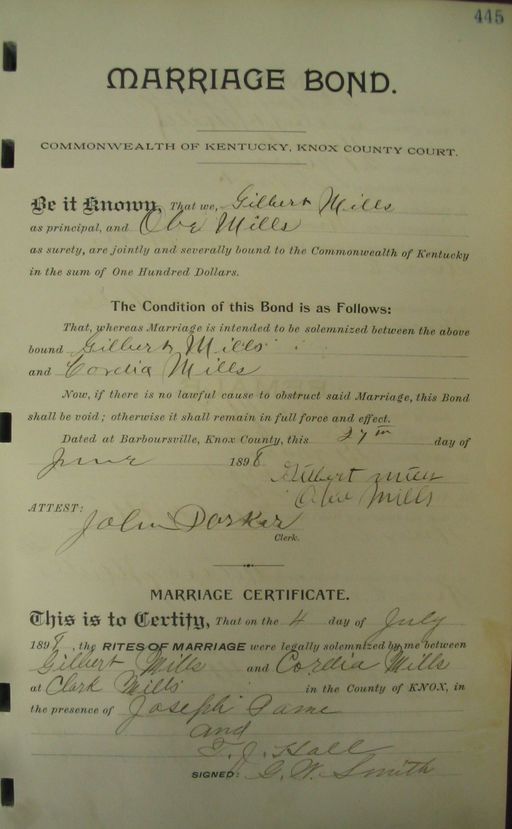 445
MARRIAGE BOND.
COMMONWEALTH OF KENTUCKY, KNOX COUNTY COURT.
Be it Known, That we, Gilbert Mills
as principal, and Obe Mills
as surety, are jointly and severally bound to the Commonwealth of Kentucky
in the sum of One Hundred Dollars.
The Condition of this Bond is as Follows:
That, whereas Marriage is intended to be solemnized between the above
bound Gilbert Mills
and Cordia Mills
Now, if there is no lawful cause to obstruct said Marriage, this Bond
shall be void; otherwise it shall remain in full force and effect.
Dated at Barboursville, Knox County, this 27th day of
June 1898.
Gilbert Mills
Obe Mills
ATTEST:
John Parker
Clerk.
MARRIAGE CERTIFICATE.
This is to Certify, That on the 4 day of July
1898, the RITES OF MARRIAGE were legally solemnized by me between
Gilbert Mills and Cordia Mills
at Clark Mills in the County of KNOX, in
the presence of Joseph
and
T. J. Hall
SIGNED: G. W. Smith